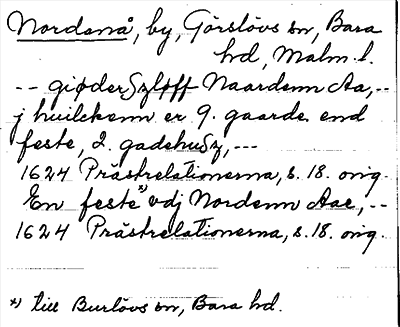 Nordanå, by, Görslövs sn, Bara
hd, Malm. l.
-- giøder Naardenn Aa,--
j huilckenn er 9. gaarde end
feste, 2. gadehusz,---
1624 Prästrelationerna, s. 18. orig.
En feste *) vdj Nordenn Aae,--
1624 Prästrelationerna, s. 18. orig.
*) till Burlövs sn, Bara hd.